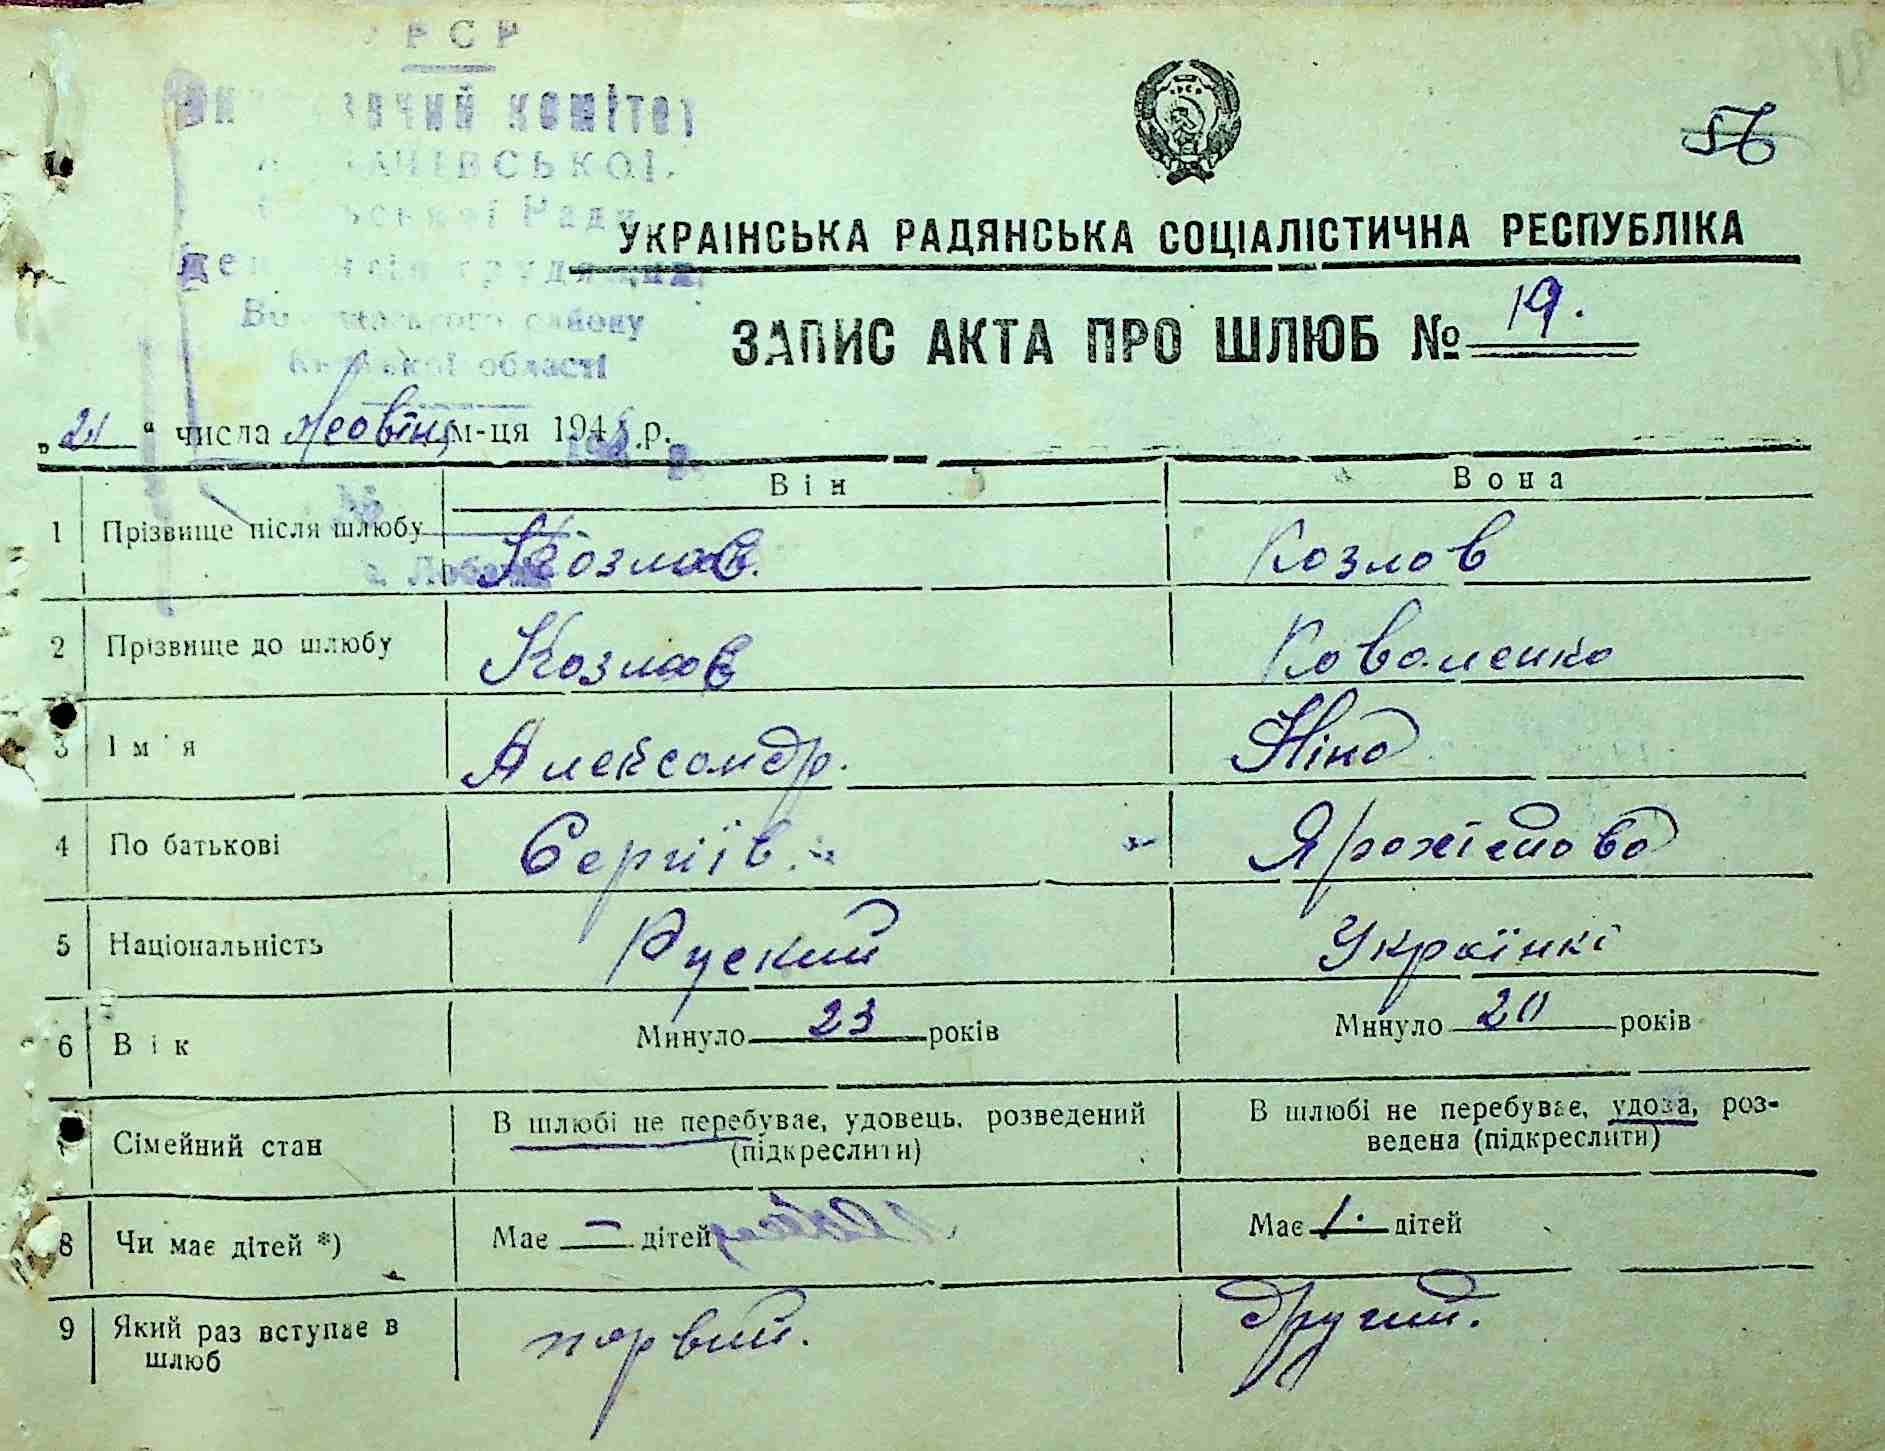 РСР
комітет
Ради
району
області
56
УКРАЇНСЬКА РАДЯНСЬКА СОЦІАЛІСТИЧНА РЕСПУБЛІКА
ЗАПИС АКТА ПРО ШЛЮБ № 19.
„21“ числа м-ця 194 р.
Він Вона
1 Прізвище після шлюбу Козлов. Козлов
2 Прізвище до шлюбу Козлов Коваленко
3 Ім'я Александр. Ніна
4 По батькові Сергіїв.
5 Національність Руский Українкі
6 Вік Минуло 23 років Минуло 20 років
7 Сімейний стан В шлюбі не перебуває, удовець, розведений (підкреслити) В шлюбі не перебуває, удова, роз-
ведена (підкреслити)
8 Чи має дітей *) Має — дітей Має 1. дітей
9 Який раз вступає в шлюб первий. другий.